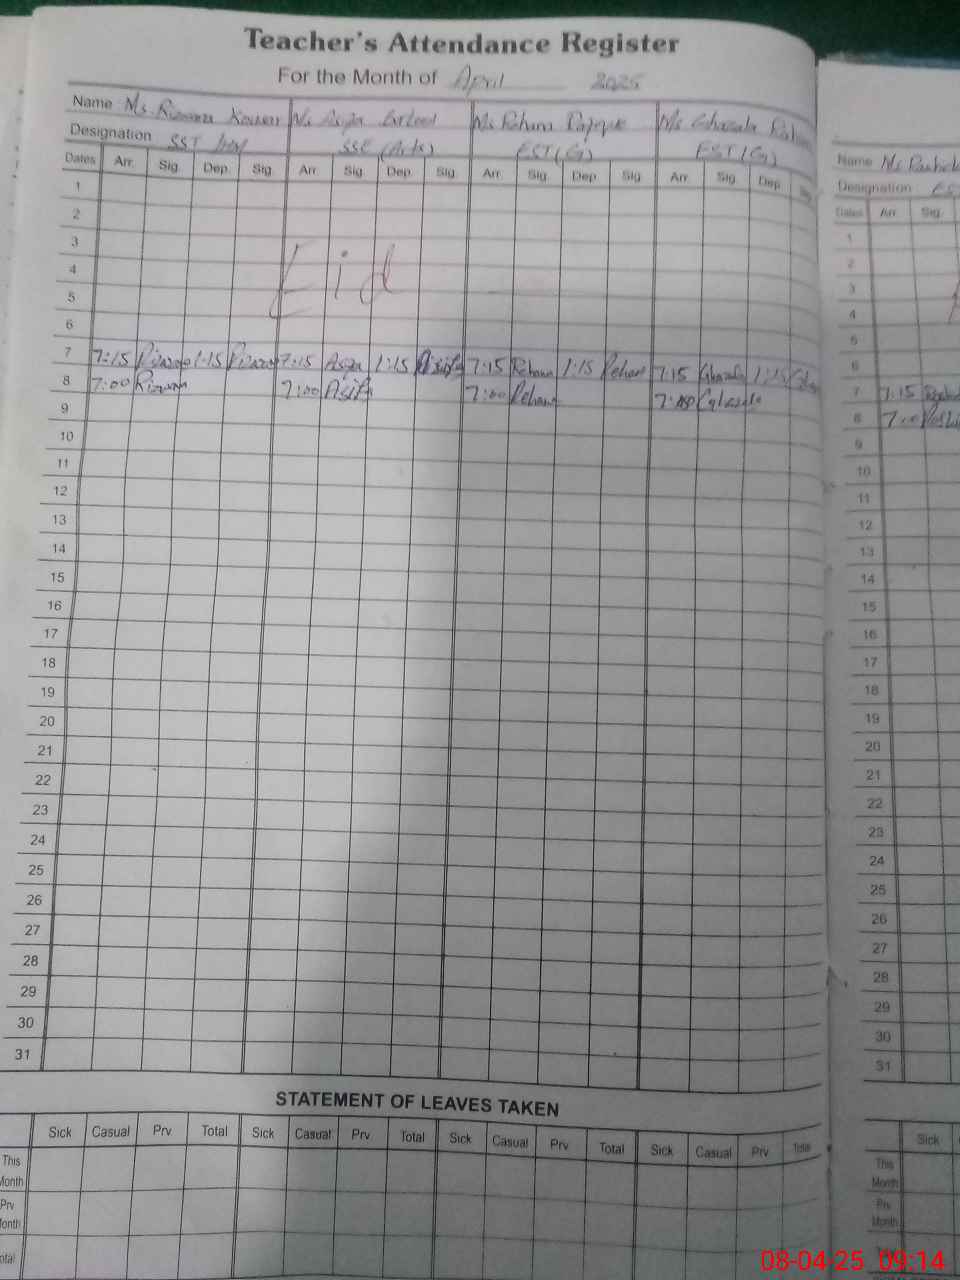 Teacher's Attendance Register
For the Month of April 2025
Name Ms. Rizwana Kousar Ms Ms Rehana Ms Ghazala
Designation SST SSE (Arts) EST (G) EST (G)
Dates Arr. Sig. Dep. Sig. Arr. Sig. Dep. Sig. Arr. Sig. Dep. Sig. Arr. Sig. Dep. Sig.
1
2
3
4
Eid
5
6
7 7:15 Rizwana 1:15 Rizwana 7:15 Asifa 1:15 Asifa 7:15 Rehana 1:15 Rehana 7:15 Ghazala 1:15
8 7:00 Rizwana 7:00 Asifa 7:00 Rehana 7:00 Ghazala
9
10
11
12
13
14
15
16
17
18
19
20
21
22
23
24
25
26
27
28
29
30
31
STATEMENT OF LEAVES TAKEN
Sick Casual Prv Total Sick Casual Prv Total Sick Casual Prv Total Sick Casual Prv Total
This
Month
Prv
Month
Total
Name Ms
Designation
Dates Arr. Sig.
1
2
3
4
5
6
7 7:15
8
9
10
11
12
13
14
15
16
17
18
19
20
21
22
23
24
25
26
27
28
29
30
31
Sick
This
Month
Prv
Month
08-04-25 09:14